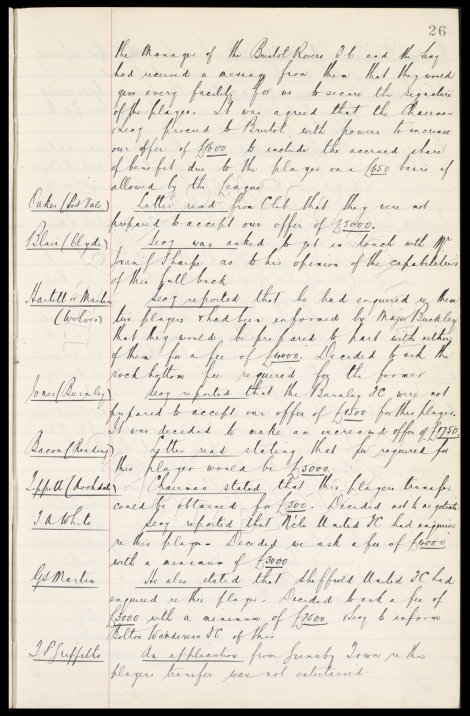 26
the Manager of the Bristol Rovers F.C. and the Secy
had received a message from them that they would
give every facility for us to secure the signature
of the player. It was agreed that the Chairman
& Secy proceed to Bristol, with powers to increase
our offer of £1600 to include the accrued share
of benefit due to the player on a £650 basis if
allowed by the League
Oakes (Port Vale) Letter read from Club that they were not
prepared to accept our offer of £5000.
Blair (Clyde) Secy was asked to get in touch with Mr
Ivan J Sharpe as to his opinion of the capabilities
of this full back
Hartill & Martin Secy reported that he had enquired re these
(Wolves) two players & had been informed by Major Buckley
that they would be prepared to part with either
of them for a fee of £4000. Decided to ask the
rock bottom fee required for the former
Jones (Burnley) Secy reported that the Burnley FC were not
prepared to accept our offer of £1500 for this player.
It was decided to make an increased offer of £1750
Bacon (Reading) Letter read stating that fee required for
this player would be £3000
Tippett (Rochdale) Chairman stated that this players transfer
could be obtained for £500. Decided not to negotiate
T.A White Secy reported that N'cle United FC had enquired
re this player. Decided we ask a fee of £4000
with a minimum of £3000
G.S Martin He also stated that Sheffield United FC had
enquired re this player. Decided to ask a fee of
£3000 with a minimum of £2500 Secy to inform
Bolton Wanderers FC of this
T.P Griffiths An application from Grimsby Town re this
players transfer was not entertained.